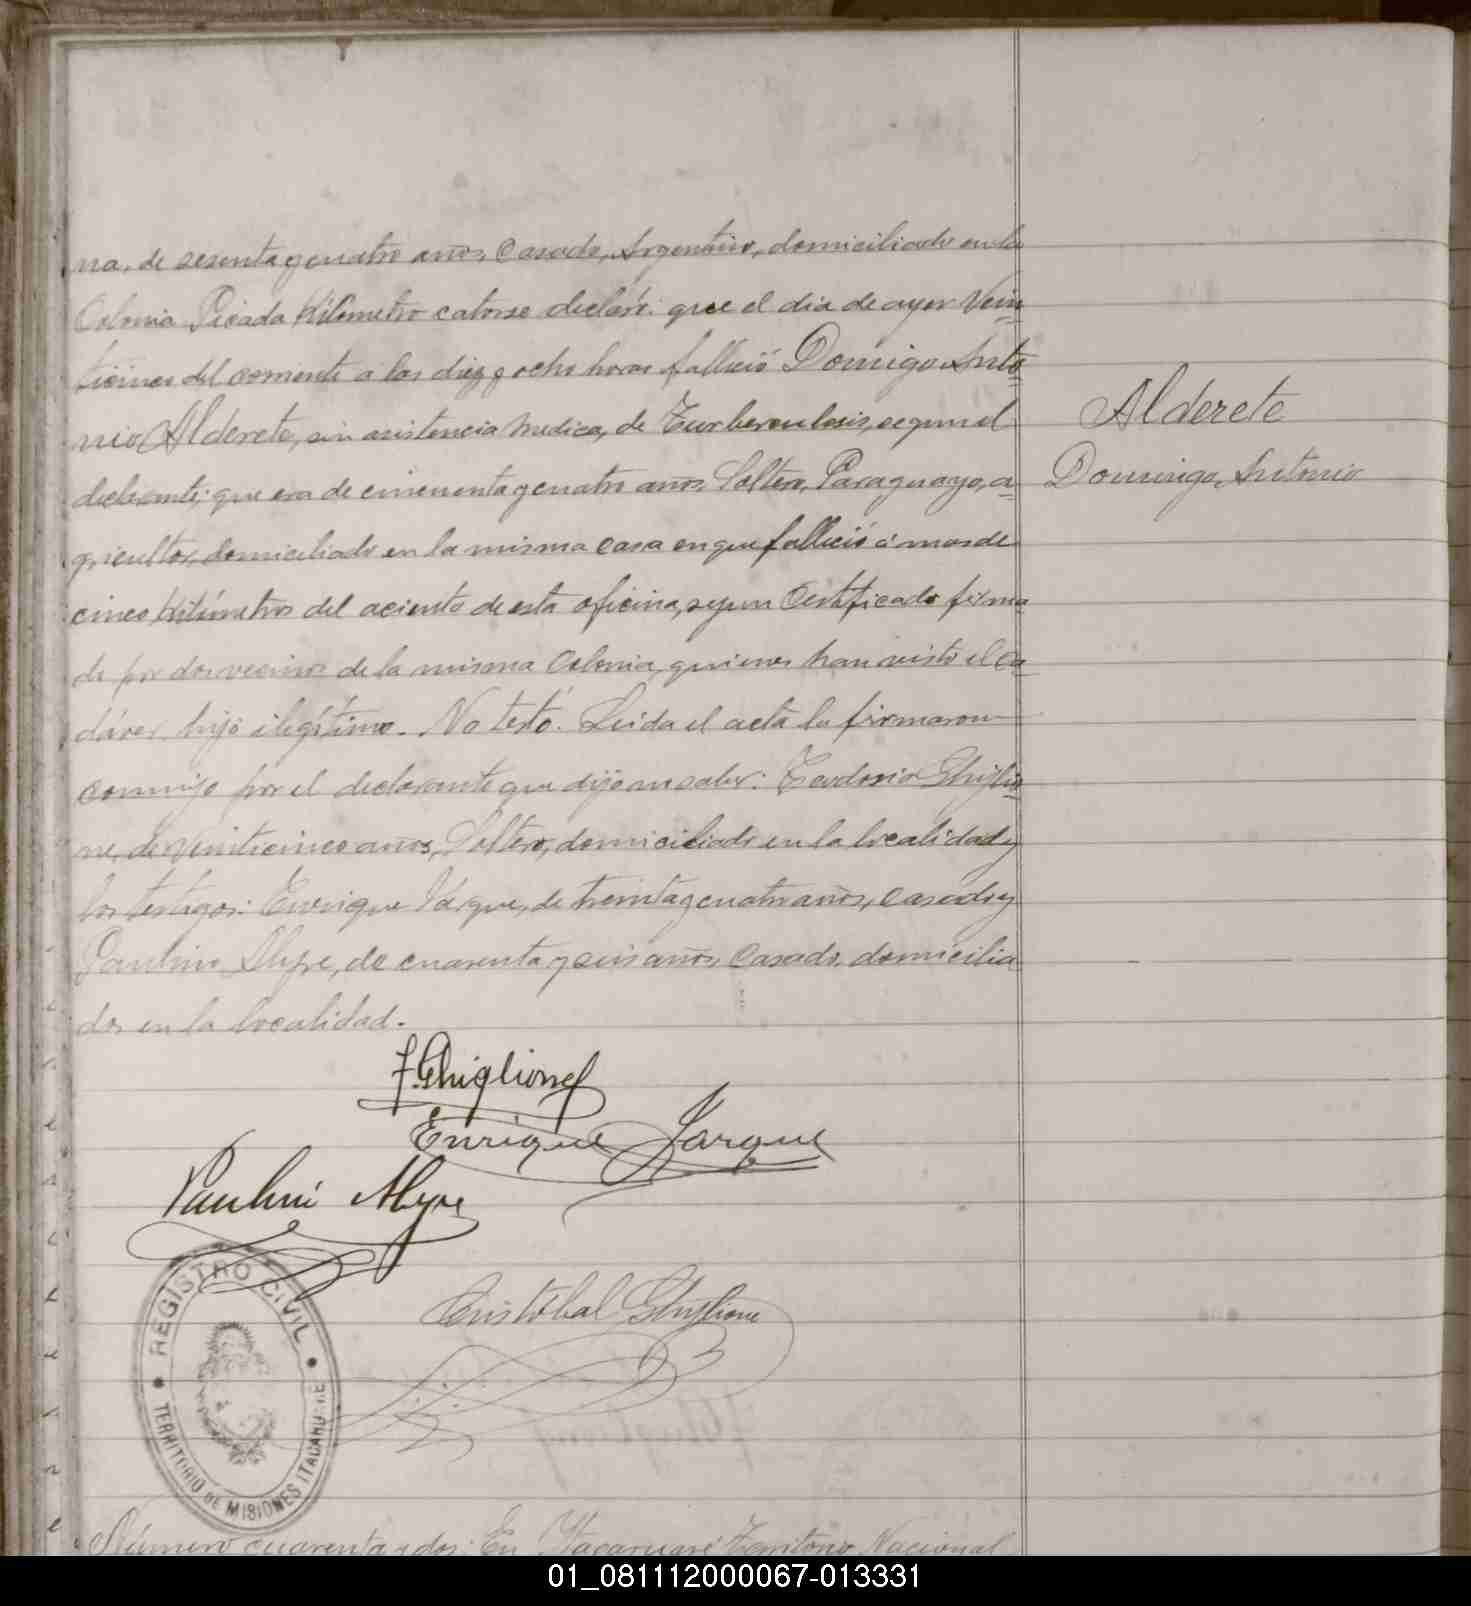 na, de sesenta y cuatro años, Casado, Argentino, domiciliado en la
Colonia Picada Kilometro catorse declaró: que el dia de ayer Vein
ticinco del corriente á las diez y ocho horas fallició Domigo Anto
nio Alderete, sin asistencia Medica, de Turberculosis, segun el
Alderete
declarante; que era de cincuenta y cuatro años, Soltero, Paraguayo, a
Domingo Antonio
gricultor, domiciliado en la misma casa en que fallició á mas de
cinco Kilómetros del aciento de esta oficina, segun Certificado firma
do por dos vecinos de la misma Colonia, quienes han visto el ca
dáver, hijo ilegítimo. No testó. Leida el acta la firmaron
conmigo por el declarante que dijo no saber: Teodosio Ghiglio
ne, de veinticinco años, Soltero, domiciliado en la localidad y
los testigos: Enrique Jarque, de treinta y cuatro años, casado y
Paulino Alegre, de cuarenta y seis años, Casado, domicilia
dos en la localidad.
T. Ghiglione
Enrique Jarque
Paulino
Cristóbal Ghiglione
REGISTRO CIVIL
TERRITORIO DE MISIONES ITACARUARE
Número cuarenta y dos: En Itacaruaré Territorio Nacional
01_081112000067-013331